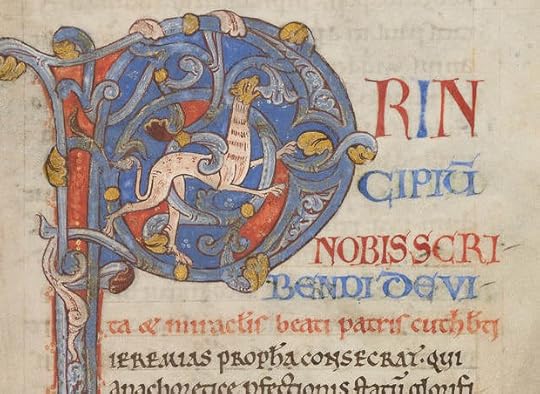 PRIN
CIPIŪ
NOBIS SCRI-
BENDI DE VI-
ta & miraclis beati patris cuthb̄ti
IEREMIAS PROPHA CONSECRAT. QUI
anachoretice pfectionis statū glorifi